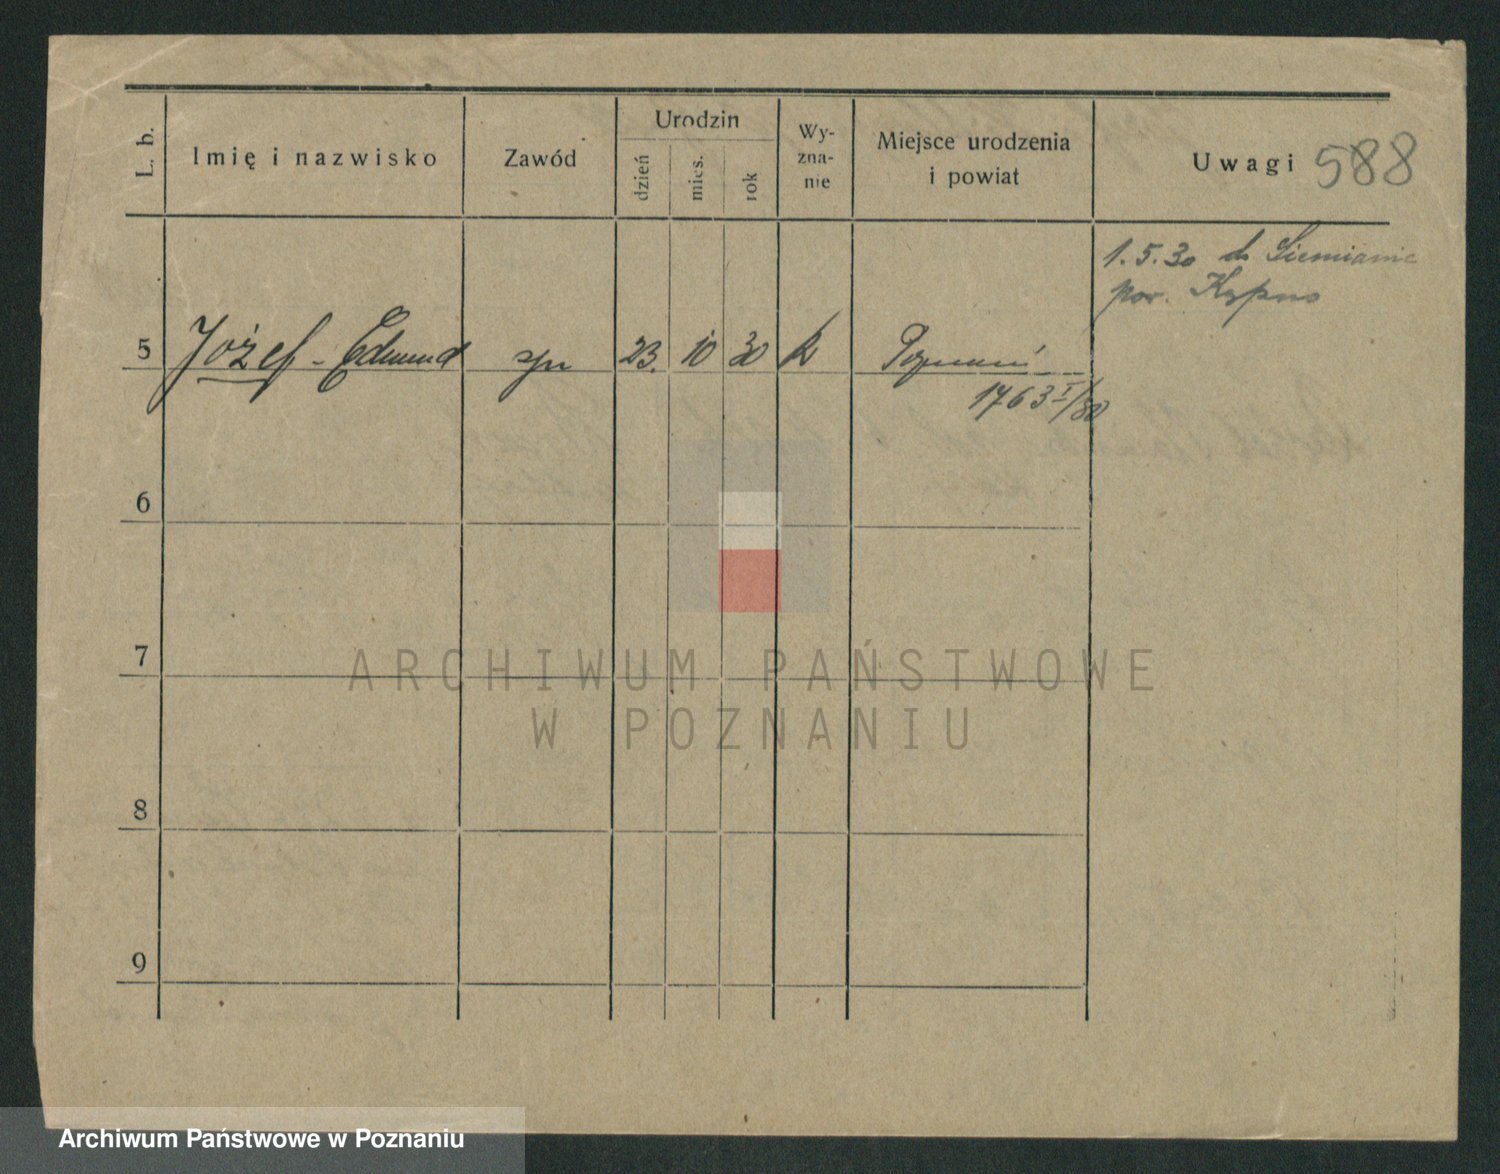 L. b.
Imię i nazwisko
Zawód
Urodzin
dzień
mies.
rok
Wy-
zna-
nie
Miejsce urodzenia
i powiat
Uwagi 588
1.5.30 do Siemianic
pow. Kępno
5 Józef - Edmund syn 23. 10 30 k Poznań
1763 I/30
6
7
8
9
ARCHIWUM PAŃSTWOWE
W POZNANIU
Archiwum Państwowe w Poznaniu